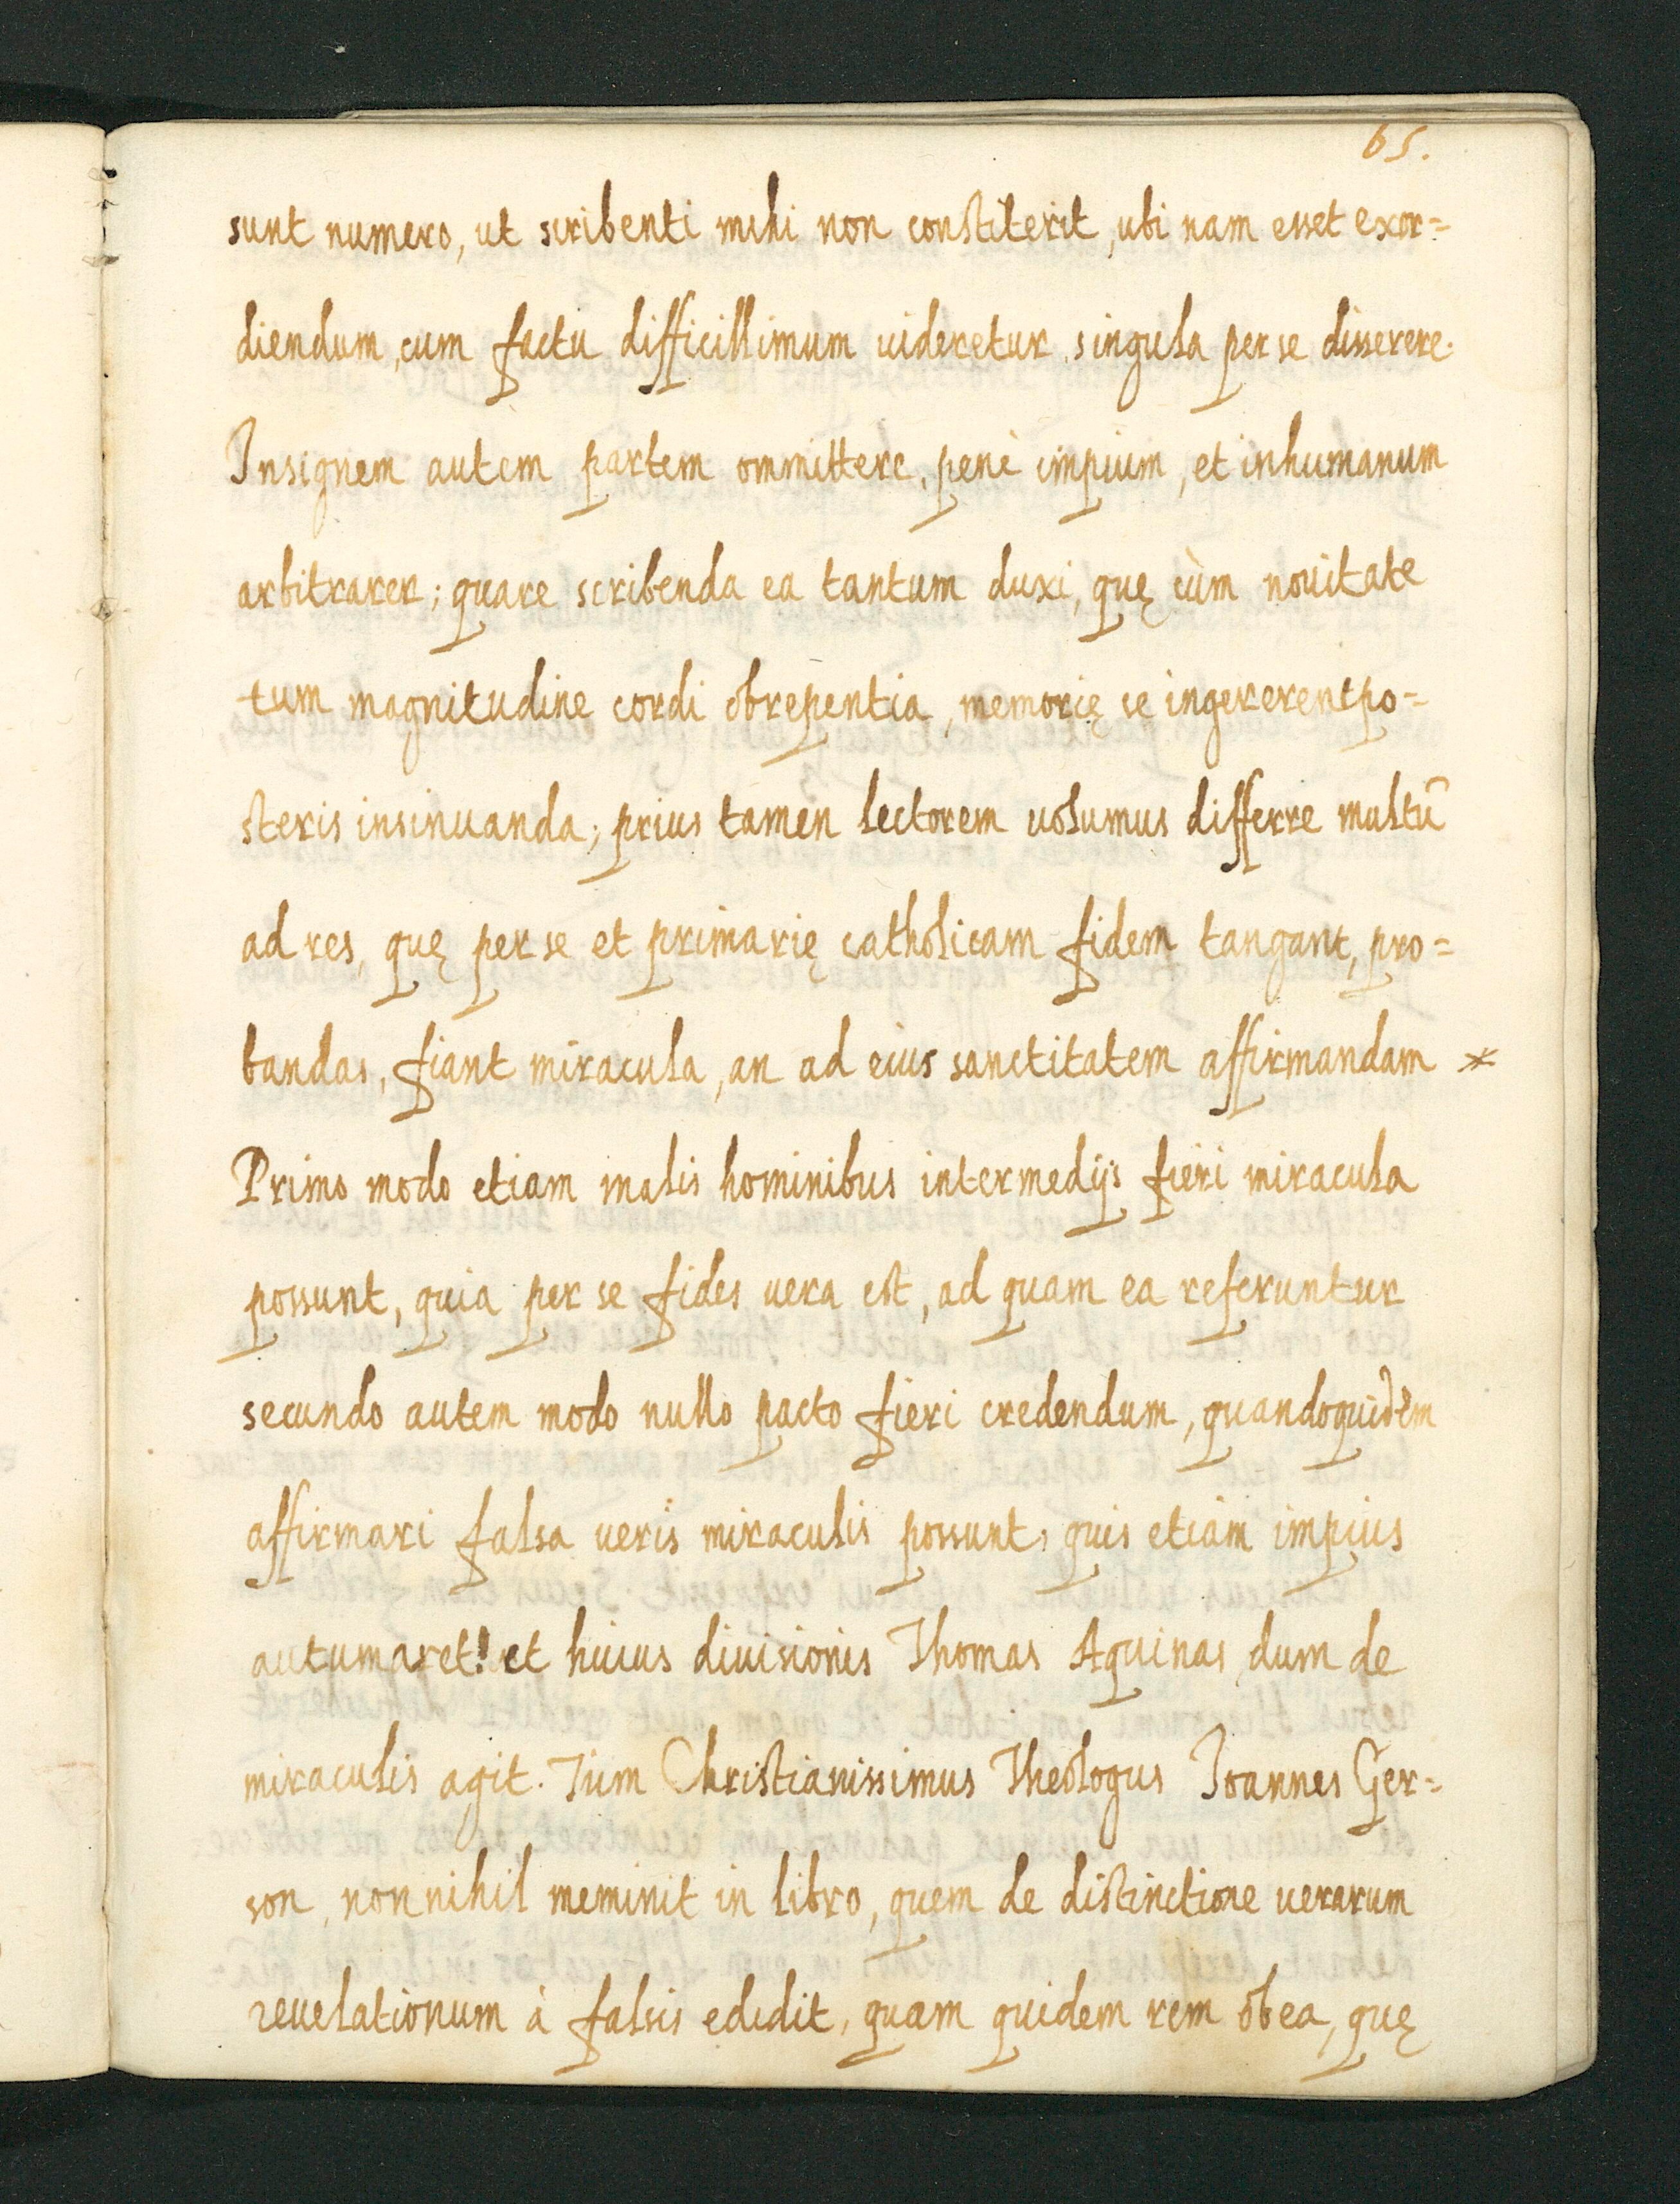 65.
sunt numero, ut scribenti mihi non constiterit, ubi nam esset exor=
diendum, cum factu difficillimum uideretur singula per se disserere.
Insignem autem partem ommittere, penè impium, et inhumanum
arbitrarer; quare scribenda ea tantum duxi, quę cùm nouitate
tum magnitudine cordi obrepentia, memorię se ingererent po=
steris insinuanda; prius tamen lectorem uolumus differre multũ
ad res, quę per se et primarię catholicam fidem tangant, pro=
bandas, fiant miracula, an ad eius sanctitatem affirmandam *
Primo modo etiam malis hominibus intermedijs fieri miracula
possunt, quia per se fides uera est, ad quam ea referuntur
secundo autem modo nullo pacto fieri credendum, quandoquidem
affirmari falsa ueris miraculis possunt, quis etiam impius
autumaret! et huius diuisionis Thomas Aquinas dum de
miraculis agit. Tum Christianissimus Theologus Ioannes Ger=
son, nonnihil meminit in libro, quem de distinctione uerarum
reuelationum à falsis edidit, quam quidem rem ob ea, quę